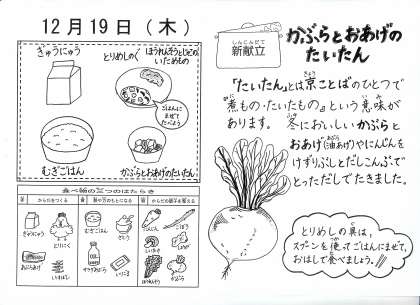 12月19日（木）
ぎゅうにゅう
とりめしのぐ
ほうれんそうとじゃこの
いためもの
ごはんに
まぜて
たべよう
むぎごはん
かぶらとおあげのたいたん
食べ物の三つのはたらき
からだをつくる
熱や力のもとになる
からだの調子を整える
ぎゅうにゅう
とりにく
むぎごはん
さとう
しんこんだて
新献立
かぶらとおあげの
たいたん
「たいたん」とは京ことばのひとつで
『煮もの・たいたもの』という意味が
あります。冬においしいかぶらと
おあげ(油あげ)やにんじんを
けずりぶしとだしこんぶで
とっただしでたきました。
とりめしの具は、
スプーンを使ってごはんにまぜて、
おはしで食べましょう!!